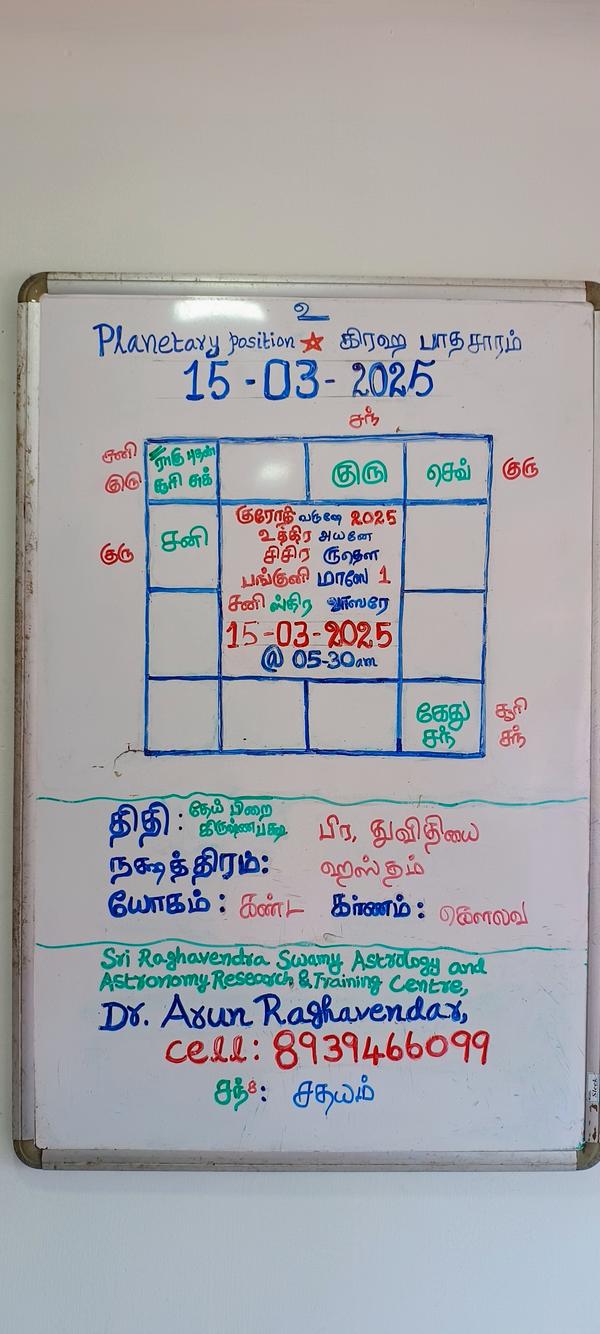 உ
Planetary position ★ கிரஹ பாதசாரம்
15-03-2025
சந்
சனி
குரு
ராகு புதன்
சூரி சுக்
குரு
செவ்
குரு
குரு
சனி
குரோதி வருஷே 2025
உத்திர அயனே
சிசிர ருதௌ
பங்குனி மாஸே 1
சனி ஸ்திர வாஸரே
15-03-2025
@ 05-30am
கேது
சந்
சூரி
சந்
திதி: தேய் பிறை
கிருஷ்ணபக்ஷ
பிர, துவிதியை
நக்ஷத்திரம்: ஹஸ்தம்
யோகம்: கண்ட கர்ணம்: கௌலவ
Sri Raghavendra Swamy Astrology and
Astronomy Research & Training Centre,
Dr. Arun Raghavendar,
Cell: 8939466099
சந்8: சதயம்